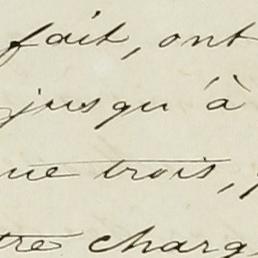 fait, ont
jusqu'à
ue trois,
tre charg